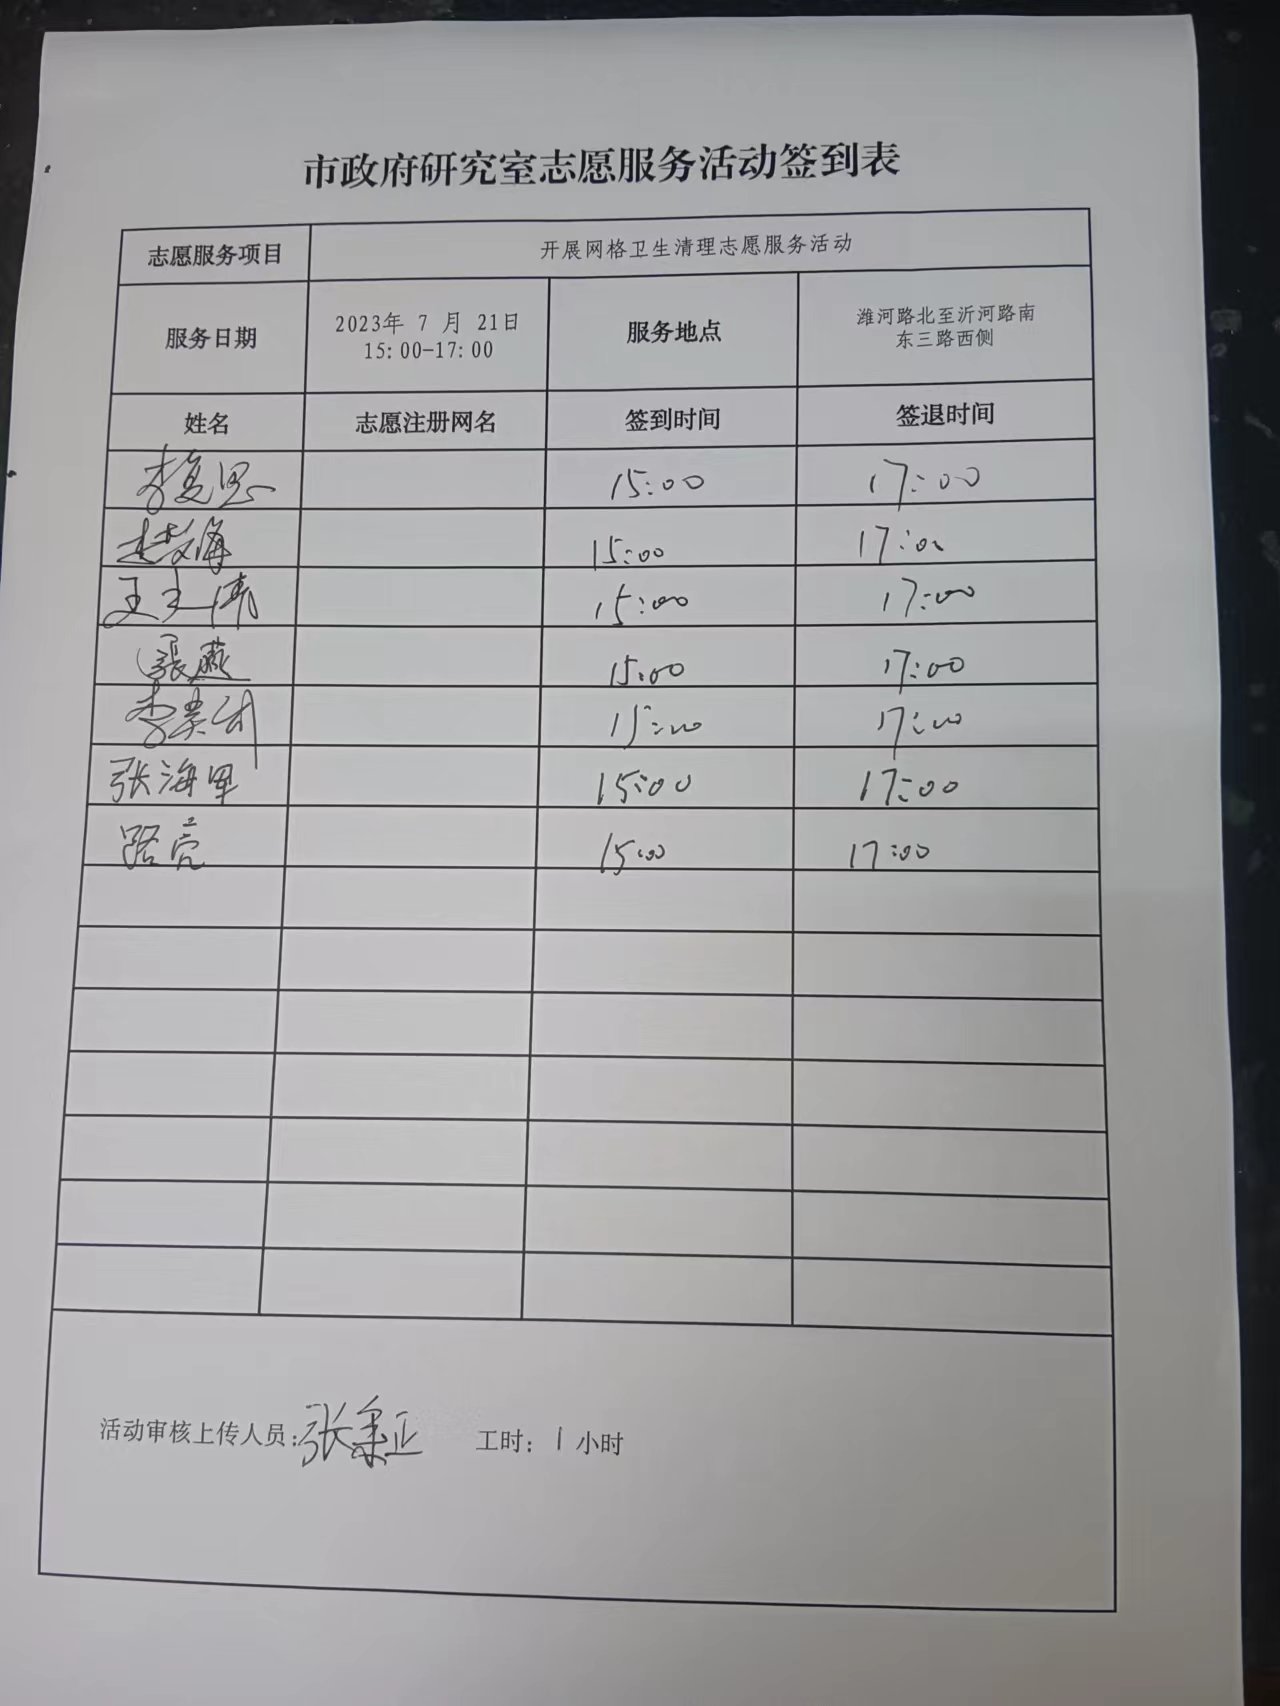 市政府研究室志愿服务活动签到表
志愿服务项目 开展网格卫生清理志愿服务活动
服务日期 2023年 7 月 21日 15:00-17:00 服务地点 潍河路北至沂河路南 东三路西侧
姓名 志愿注册网名 签到时间 签退时间
李复思 15:00 17:00
15:00 17:00
15:00 17:00
張燕 15:00 17:00
15:00 17:00
张海军 15:00 17:00
路亮 15:00 17:00
活动审核上传人员: 工时: 1 小时